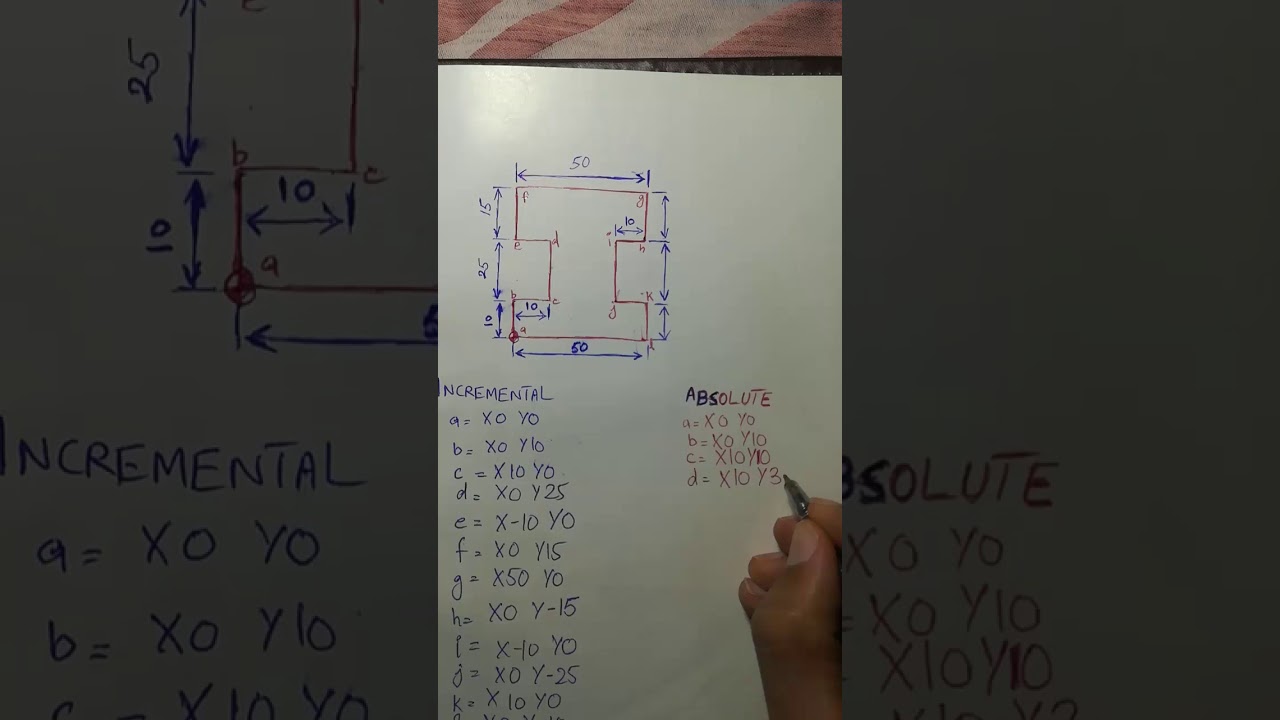 50
f
g
15
10
e
d
i
h
25
b
c
j
k
10
10
a
50
l
INCREMENTAL
a= X0 Y0
b= X0 Y10
c = X10 Y0
d= X0 Y25
e = X-10 Y0
f= X0 Y15
g= X50 Y0
h= X0 Y-15
i = X-10 Y0
j= X0 Y-25
k= X10 Y0
ABSOLUTE
a= X0 Y0
b= X0 Y10
c= X10Y10
d= X10 Y3